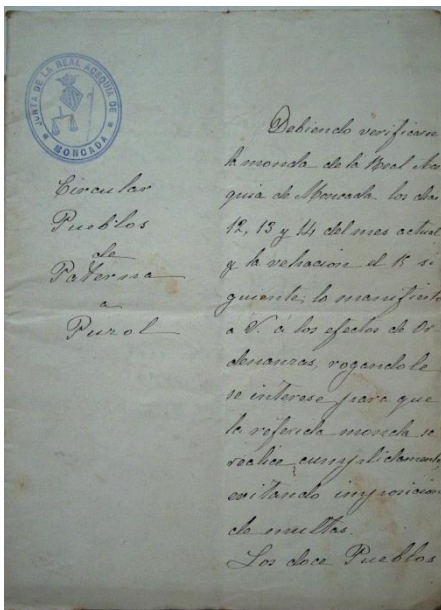 JUNTA DE LA REAL ACEQUIA DE
MONCADA
Circular
Pueblos
de
Paterna
a
Puzol
Debiendo verificarse
la monda de la Real Ace
quia de Moncada los dias
12, 13 y 14 del mes actual
y la el 15 si
guiente; lo manifiesto
a V. á los efectos de Or
denanzas, rogandole
se interese para que
la referida monda se
realice cumplidamente
evitando imposicion
de multas.
Los doce Pueblos